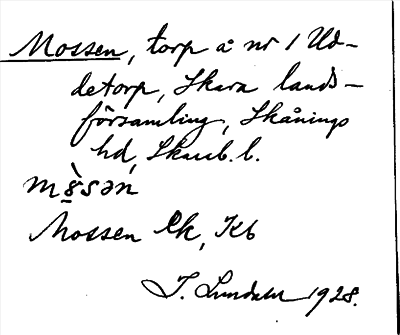 Mossen, torp å nr 1 Ud-
detorp, Skara lands-
församling, Skånings
hd, Skarab. l.
mòsən
Mossen Ek, Kb
I. Lundahl 1928.